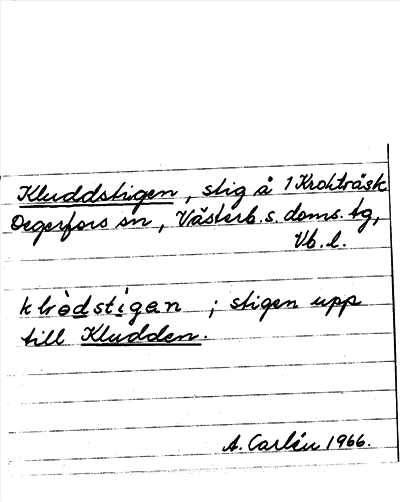 Kluddstigen, stig å 1 Krokträsk
Degerfors sn, Västerb. s. doms. tg,
Vb. l.
stigen upp
till Kludden.
A. Carlén 1966.